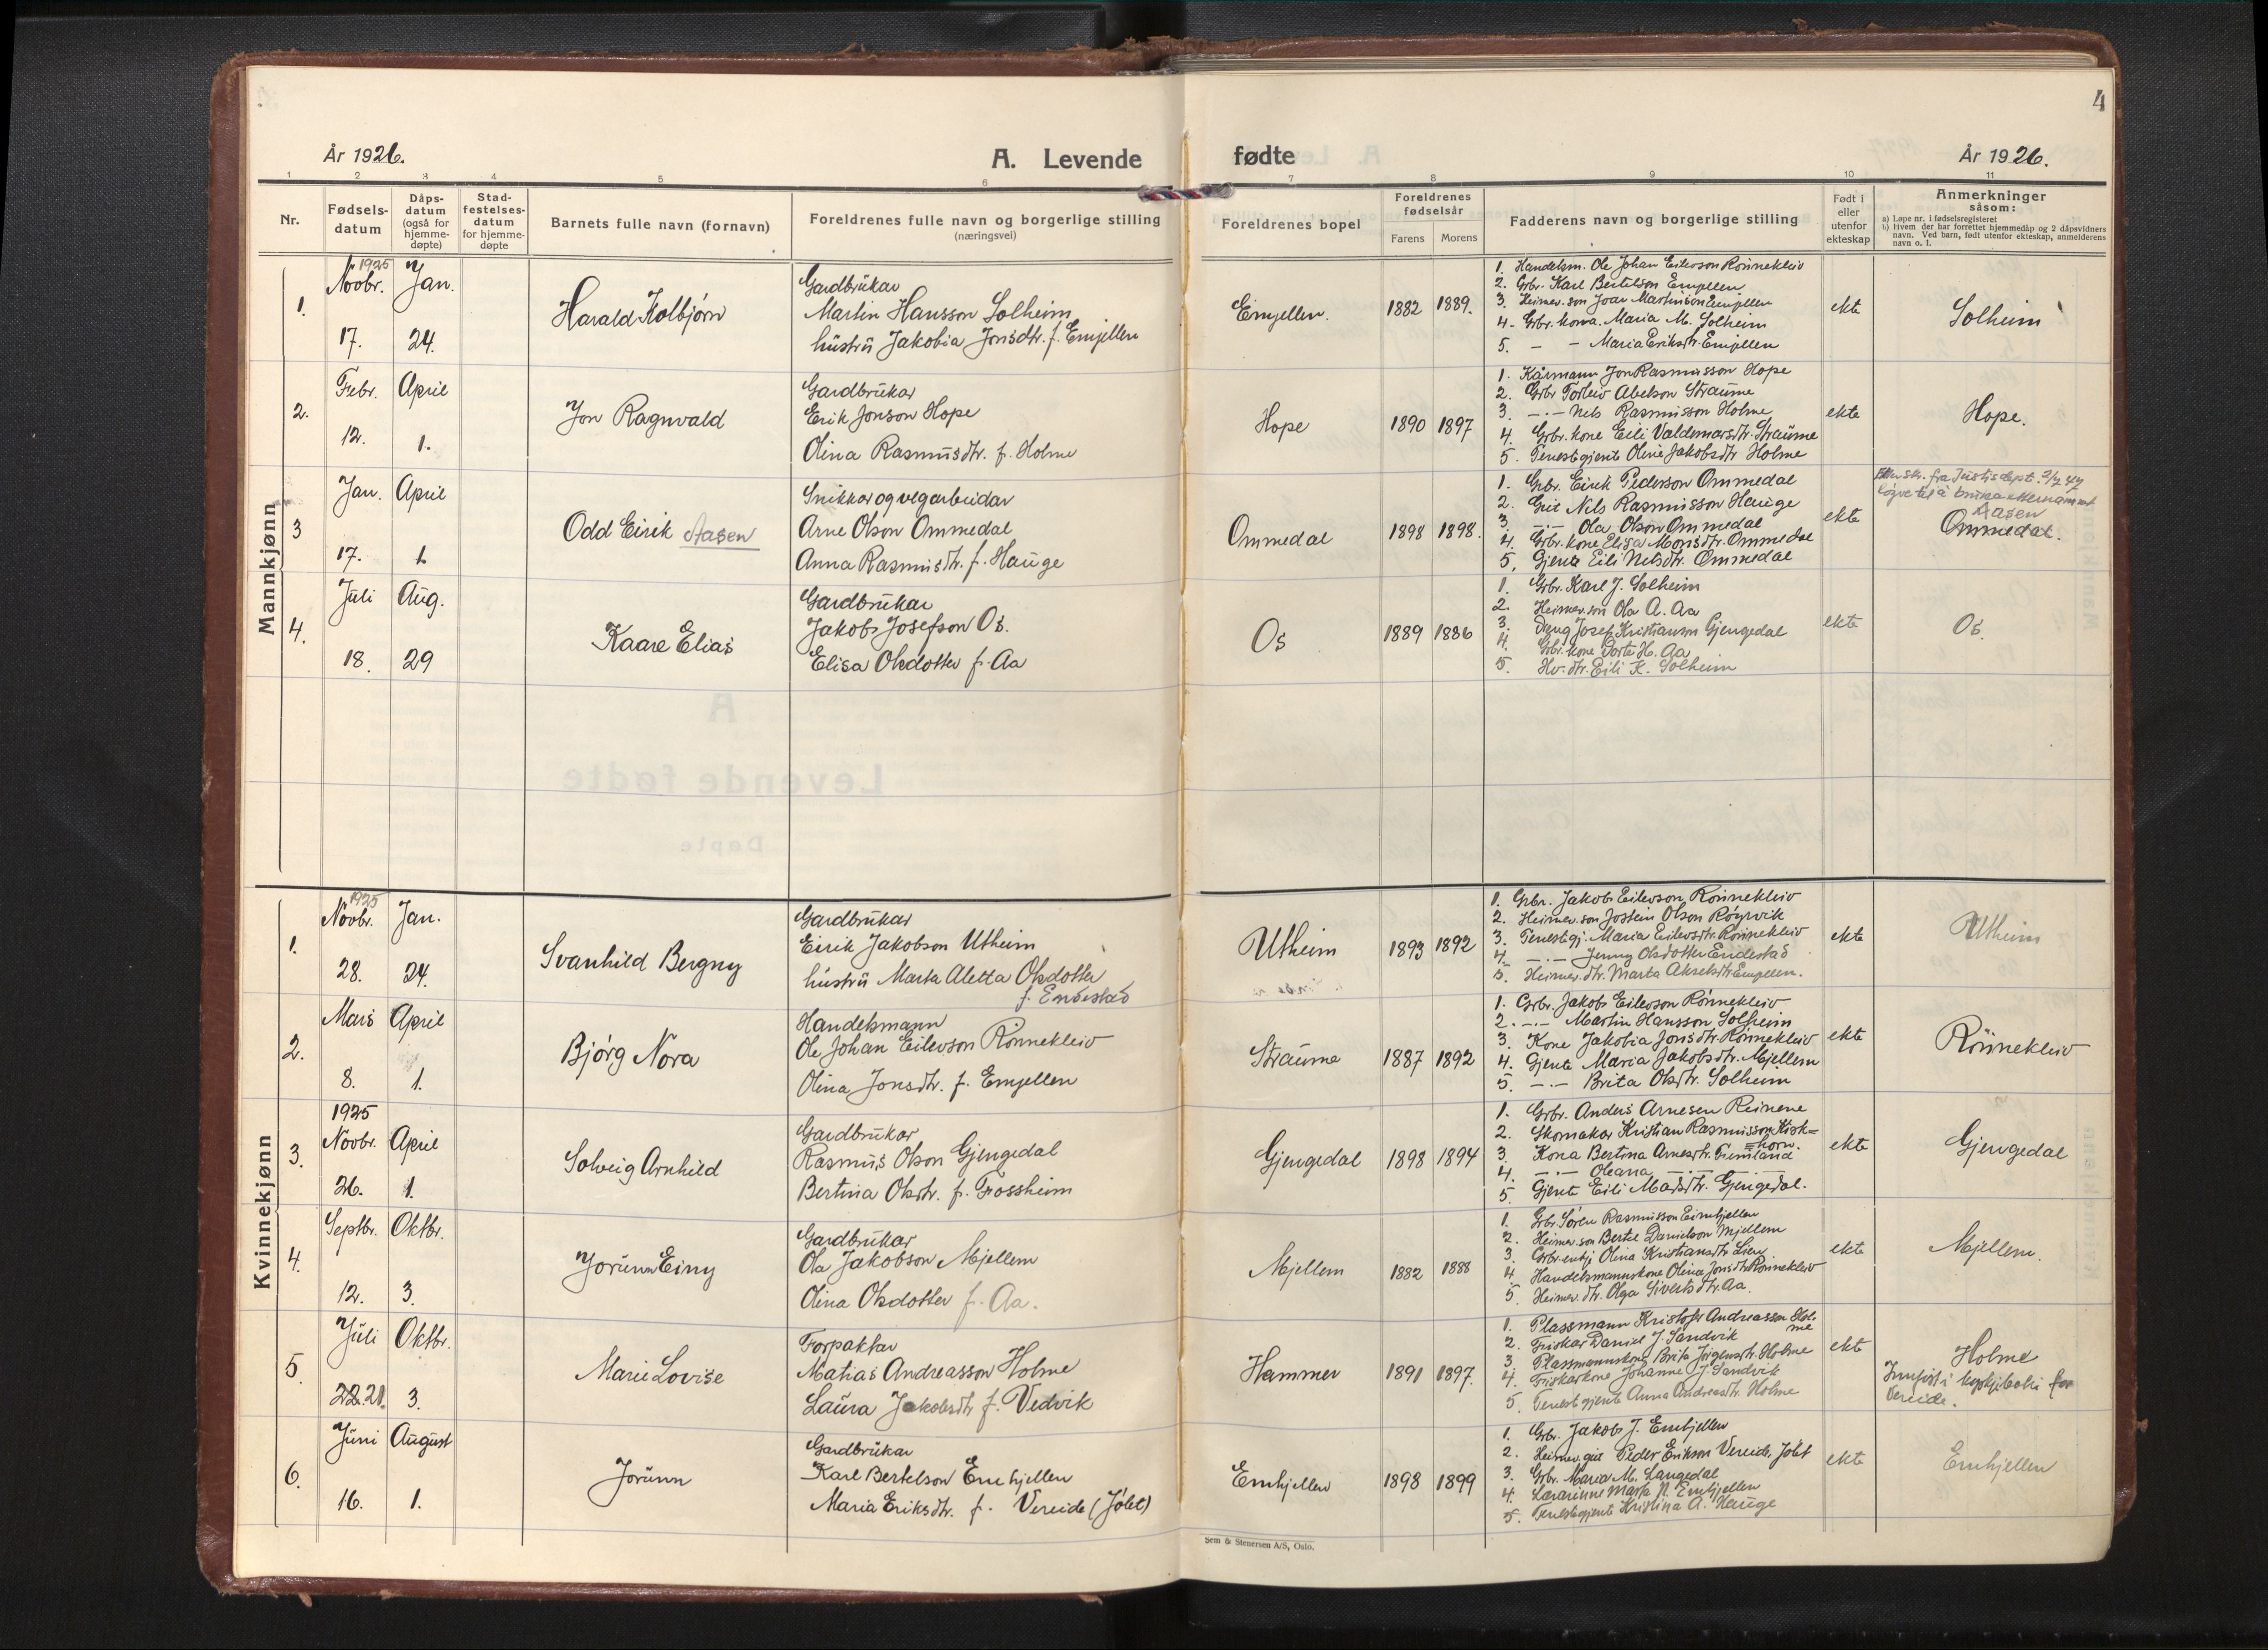 4
År 1926.
A. Levende
fødte
År 1926.
1 2 3 4 5 6 7 8 9 10 11
Nr.
Fødsels-
datum
Dåps-
datum
(også for
hjemme-
døpte)
Stad-
festelses-
datum
for hjemme-
døpte
Barnets fulle navn (fornavn)
Foreldrenes fulle navn og borgerlige stilling
(næringsvei)
Foreldrenes bopel
Foreldrenes
fødselsår
Farens
Morens
Fadderens navn og borgerlige stilling
Født i
eller
utenfor
ekteskap
Anmerkninger
såsom:
a) Løpe nr. i fødselsregisteret
b) Hvem der har forrettet hjemmedåp og 2 dåpsvidners
navn. Ved barn, født utenfor ekteskap, anmelderens
navn o. l.
Mannkjønn
1.
1925
Novbr.
17.
Jan.
24.
Harald Kolbjørn
Gardbrukar
Martin Hansson Solheim
hustru Jakobia Jonsdtr. f. Emjellen
Emjellen.
1882
1889.
1. Handelsm. Ole Johan Eilevson Rønnekleiv
2. Grbr. Karl Bertelson Emjellen
3. Heimev. son Joar Martinson Emjellen
4. Grbr. kona. Maria M. Solheim
5. – – Maria Eriksdtr. Emjellen
ekte
Solheim
2.
Febr.
12.
April
1.
Jon Ragnvald
Gardbrukar
Erik Jonson Hope
Olina Rasmusdtr. f. Holme
Hope
1890
1897
1. Kårmann Jon Rasmusson Hope
2. Grbr Torleiv Abelson Straume
3. –·– Nils Rasmusson Holme
4. Grbr. kone Eili Valdemarsdtr. Straume
5. Tenestgjente Oline Jakobsdtr Holme
ekte
Hope.
3
Jan.
17.
April
1.
Odd Eirik Aasen
Snikkar og vegarbeidar
Arne Olson Ommedal
Anna Rasmusdtr. f. Hauge
Ommedal
1898
1898.
1. Grbr. Eirik Pederson Ommedal
2. Gut Nils Rasmusson Hauge
3. –·– Ola Olson Ommedal
4. Grbr. kone Elisa Monsdtr. Ommedal
5. Gjente Eili Nilsdtr. Ommedal
ekte
skr. fra Justisdept. 7/2 47
løyve til å bruka etternamnet
Aasen
Ommedal.
4.
Juli
18.
Aug.
29
Kaare Elias
Gardbrukar
Jakob Josefson Os.
Elisa Olsdotter f. Aa
Os
1889
1886
1. Grbr. Karl J. Solheim
2. Heimev. son Ola A. Aa
3. Dreng Josef Kristianson Gjengedal
4. Grbr. kone Dorte H. Aa
5. Hv. dtr. Eili K. Solheim
ekte
Os.
Kvinnekjønn
1.
1925
Novbr.
28.
Jan.
24.
Svanhild Bergny
Gardbrukar
Eirik Jakobson Utheim
hustru Marta Aletta Olsdotter
f. Endestad
Utheim
1893
1892
1. Grbr. Jakob Eilevson Rønnekleiv
2. Heimev. son Jostein Olson Røyrvik
3. Tenestgj. Maria Eilevsdtr. Rønnekleiv
4. –·– Jenny Olsdotter Endestad
5. Heimev. dtr. Marta Akselsdtr Emjellen.
ekte
Utheim
2.
Mars
8.
April
1.
Bjørg Nora
Handelsmann
Ole Johan Eilevson Rønnekleiv
Olina Jonsdtr. f. Emjellen
Straume
1887
1892
1. Grbr. Jakob Eilevson Rønnekleiv
2. –·– Martin Hansson Solheim
3. Kone Jakobia Jonsdtr. Rønnekleiv
4. Gjente Maria Jakobsdtr. Mjellem
5. –·– Brita Olsdtr. Solheim
ekte
Rønnekleiv
3.
1925
Novbr.
26.
April
1.
Solveig Arnhild
Gardbrukar
Rasmus Olson Gjengedal
Bertina Olsdtr. f. Fossheim
Gjengedal
1898
1894
1. Grbr. Anders Arnesen Reinene
2. Skomakar Kristian Rasmusson Kisk=
=horn.
3. Kona Bertina Arnesdtr.
4. –·– Oleana –·– –·–
5. Gjente Eili Madsdtr. Gjengedal.
ekte
Gjengedal
4.
Septbr.
12.
Oktbr.
3.
Jorunn Einy
Gardbrukar
Ola Jakobson Mjellem
Olina Olsdotter f. Aa.
Mjellem
1882
1888
1. Grbr. Søren Rasmusson Eimhjellen
2. Heimev. son Bertel Danielson Mjellem
3. Grbr. enkj Olina Kristiansdtr Lien
4. Handelsmannskone Olina Jonsdtr Rønnekleiv
5. Heimev. dtr. Olga Sivertsdtr. Aa.
ekte
Mjellem.
5
Juli
22. 21.
Oktbr.
3.
Marie Lovise
Forpaktar
Matias Andreasson Holme
Laura Jakobsdtr f. Vedvik
Hammer
1891
1897.
1. Plassmann Kristofer Andreasson Hol-
me
2. Friskar Daniel J. Sandvik
3. Plassmannskone Brita Jørgensdtr. Holme
4. Friskarkone Johanne J. Sandvik
5. Tenestgjente Anna Andreasdtr. Holme
ekte
Holme
Innført i kyrkjeboki for
Vereide.
6.
Juni
16.
August
1.
Jorunn
Gardbrukar
Karl Bertelson Emhjellen
Maria Eriksdtr. f. Vereide (Jølet)
Emhjellen
1898
1899
1. Grbr. Jakob J. Emhjellen
2. Heimev. gut Peder Erikson Vereide, Jølet
3. Grbr. Maria M. Langedal
4. Lærarinne Marta N. Emhjellen
5. Tenestgjente Kristina A. Hauge
ekte
Emhjellen
Sem & Stenersen A/S, Oslo.